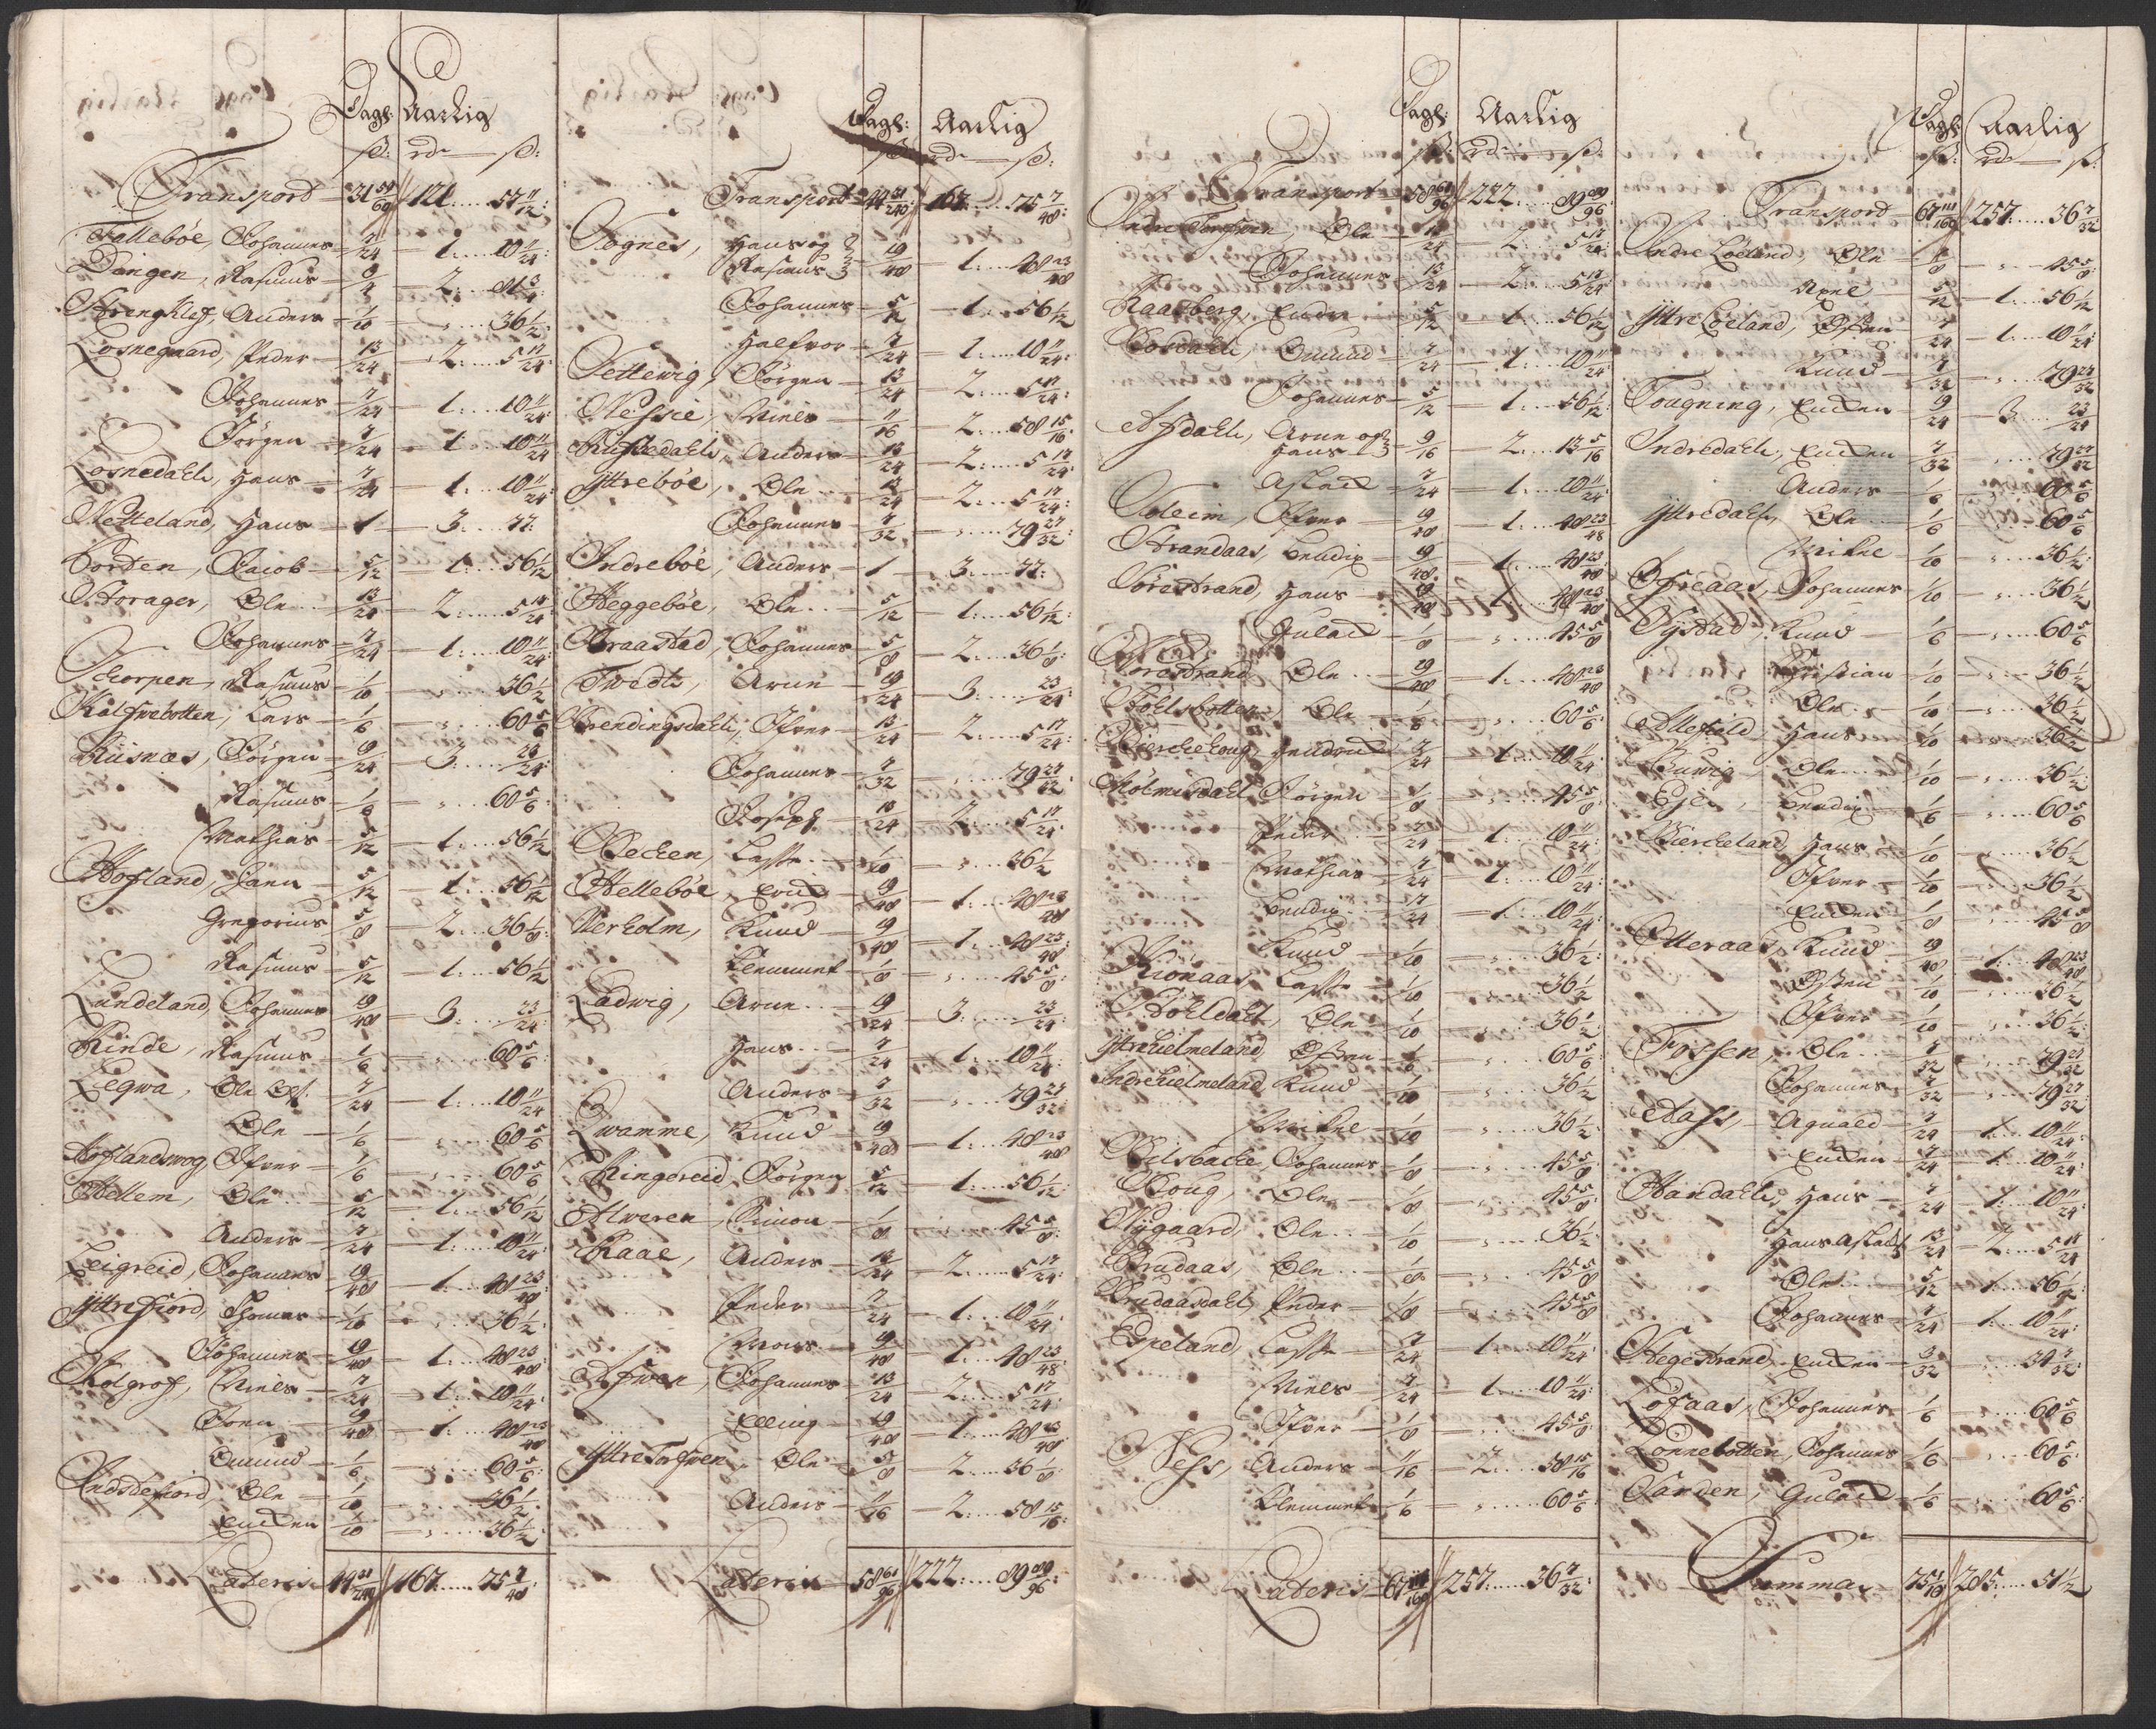 Dagl: Aarlig
ß: rdr ß:
Transport 31 59/60 121 57 11/12
Tallebøe, Johannes 7/24 1 10 11/24
Dingen, Rasmus 3/4 2 81 3/4
Strengklef, Anders 1/10 " 36 1/2
Losnegaard, Peder 13/24 2 5 17/24
Johannes 7/24 1 10 11/24
Jørgen 7/24 1 10 11/24
Losnedahl, Hans 7/24 1 10 11/24
Netteland, Hans 1 3 77
Porten, Jacob 5/12 1 56 1/12
Storager, Ole 13/24 2 5 17/24
Johannes 7/24 1 10 11/24
Schorpen, Rasmus 1/10 " 36 1/2
Kalfvebotten, Lars 1/6 " 60 5/6
Riisnæs, Jørgen 19/24 3 23/24
Rasmus 1/6 " 60 5/6
Mathias 5/12 1 56 1/12
Hofland, Jann 5/12 1 56 1/12
Gregorius 5/8 2 36 1/8
Rasmus 5/12 1 56 1/12
Lundeland, Johannes 19/48 3 23/24
Rinde, Rasmus 1/6 " 60 5/6
Legwa, Ole 7/24 1 10 11/24
Ole 1/6 " 60 5/6
Hoflandswog, Ifver 1/6 " 60 5/6
Hellem, Ole 5/12 1 56 1/12
Anders 7/24 1 10 11/24
Leigreid, Johannes 19/48 1 48 23/48
Yttrefiord, Thomas 1/10 " 36 1/2
Johannes 19/48 1 48 23/48
Kolgrof, Niels 7/24 1 10 11/24
Joen 19/48 1 48 23/48
Omund 1/6 " 60 5/6
Ole 1/10 " 36 1/2
Endten 1/10 " 36 1/2
Lateris 44 31/240 167 75 7/48
Dagl: Aarlig
ß: rdr ß:
Transport 44 31/240 167 75 7/48
Sognes, Hans og
Rasmus 19/48 1 48 23/48
Johannes 5/12 1 56 1/12
Halfvor 7/24 1 10 11/24
Tettewig, Jørgen 13/24 2 5 17/24
Niels 11/16 2 58 15/16
Anders 13/24 2 5 17/24
Yttrebøe, Ole 13/24 2 5 17/24
Johannes 7/32 " 79 27/32
Indrebøe, Anders 1 3 77
Heggebøe, Ole 5/12 1 56 1/12
Kraastad, Johannes 5/8 2 36 1/8
Tvedt, Arne 19/24 3 23/24
Brendingsdahl, Ifver 13/24 2 5 17/24
Johannes 7/32 " 79 27/32
Joseph 13/24 2 5 17/24
Becken, Lasse 1/10 " 36 1/2
Hellebøe, 19/48 1 48 23/48
Werholm, Knud 19/48 1 48 23/48
Clemmet 1/8 " 45 5/8
Ladwig, Arne 19/24 3 23/24
Hans 7/24 1 10 11/24
Anders 7/32 " 79 27/32
Qwamme, Knud 19/48 1 48 23/48
Ringereid, Jørgen 5/12 1 56 1/12
Alweren, Simon 1/8 " 45 5/8
Raae, Anders 13/24 2 5 17/24
Peder 7/24 1 10 11/24
Mons 19/48 1 48 23/48
Johannes 13/24 2 5 17/24
Elling 19/48 1 48 23/48
Yttre Torfwen Ole 5/8 2 36 1/8
Anders 11/16 2 58 15/16
Lateris 58 61/96 222 89 89/96
Dagl: Aarlig
ß: rdr ß:
Transport 58 61/96 222 89 89/96
Indre Torfwen Ole 13/24 2 5 17/24
Johannes 13/24 2 5 17/24
Raasberg, Ender 5/12 1 56 1/12
Omund 7/24 1 10 11/24
Johannes 5/12 1 56 1/12
Arne og
Hans 9/16 2 13 5/16
Aslach 7/24 1 10 11/24
Ifver 19/48 1 48 23/48
Strandaas, Bendix 19/48 1 48 23/48
Sørestrand, Hans 19/48 1 48 23/48
Gulack 1/8 " 45 5/8
Norestrand Ole 19/48 1 48 23/48
Bøhlsbotten Ole 1/6 " 60 5/6
7/24 1 10 11/24
Holmesdahl, Jørgen 1/8 " 45 5/8
Peder 7/24 1 10 11/24
Mathias 7/24 1 10 11/24
Bendix 7/24 1 10 11/24
Knud 1/10 " 36 1/2
Lasse 1/10 " 36 1/2
Ole 1/10 " 36 1/2
Yttre Hielmeland Østen 1/6 " 60 5/6
Indre Hielmeland Knud 1/10 " 36 1/2
Mikkel 1/10 " 36 1/2
Johannes 1/8 " 45 5/8
Houg, Ole 1/8 " 45 5/8
Nygaard, Ole 1/10 " 36 1/2
Brudaas, Ole 1/8 " 45 5/8
Brudaasdahl, Peder 1/8 " 45 5/8
Espeland, Lasse 7/24 1 10 11/24
Niels 7/24 1 10 11/24
Ifver 1/8 " 45 5/8
Ness, Anders 11/16 2 58 15/16
Clemmet 1/6 " 60 5/6
Lateris 67 111/160 257 36 7/32
Dagl: Aarlig
ß: rdr ß:
Transport 67 111/160 257 36 7/32
Indre Løeland, Ole 1/8 " 45 5/8
Axel 5/12 1 56 1/12
Yttre Løeland, Østen 7/24 1 10 11/24
Knud 7/32 " 79 27/32
Tougning, Endten 19/24 3 23/24
Indredahl, Endten 7/32 " 79 27/32
Anders 1/6 " 60 5/6
Yttredahl, Ole 1/6 " 60 5/6
Mikkel 1/10 " 36 1/2
Johannes 1/10 " 36 1/2
Systad, Knud 1/6 " 60 5/6
Christian 1/10 " 36 1/2
Ole 1/10 " 36 1/2
Hans 1/10 " 36 1/2
Ole 1/10 " 36 1/2
Bendix 1/6 " 60 5/6
Bierckeland, Hans 1/10 " 36 1/2
Ifver 1/10 " 36 1/2
Endten 1/8 " 45 5/8
Otteraas, Knud 19/48 1 48 23/48
Østen 1/10 " 36 1/2
Ifver 1/10 " 36 1/2
Fossen, Ole 7/32 " 79 27/32
Johannes 7/32 " 79 27/32
Aass, Aquald 7/24 1 10 11/24
Endten 7/24 1 10 11/24
Handahl, Hans 7/24 1 10 11/24
Hans Aslaks 13/24 2 5 17/24
Ole 5/12 1 56 1/12
Johannes 7/24 1 10 11/24
Hegestrand, Endten 3/32 " 34 7/32
Løfaas, Johannes 1/6 " 60 5/6
Lønnebotten, Johannes 1/6 " 60 5/6
Warden, Gulack 1/6 " 60 5/6
Summa 75 1/10 285 51 1/2